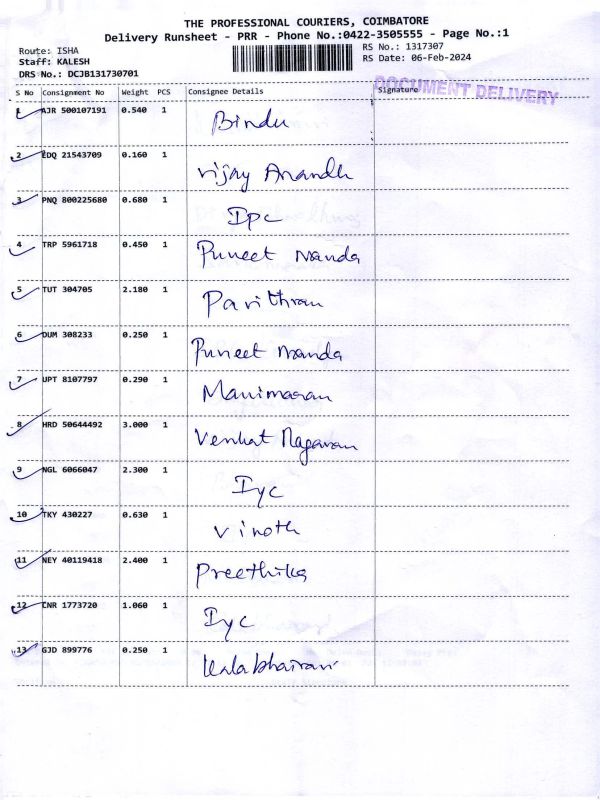 THE PROFESSIONAL COURIERS, COIMBATORE
Delivery Runsheet - PRR - Phone No.:0422-3505555 - Page No.:1
Route: ISHA
RS No.: 1317307
Staff: KALESH
RS Date: 06-Feb-2024
DRS No.: DCJB131730701
DOCUMENT DELIVERY
S No Consignment No Weight PCS Consignee Details Signature
1 AJR 500107191 0.540 1 Bindu
2 EDQ 21543709 0.160 1 Vijay Anandh
3 PNQ 800225680 0.680 1 Ipc
4 TRP 5961718 0.450 1 Puneet Nanda
5 TUT 304705 2.180 1 Pavithran
6 DUM 308233 0.250 1 Puneet Nanda
7 UPT 8107797 0.290 1 Manimaran
8 HRD 50644492 3.000 1 Venkat Nagaran
9 NGL 6066047 2.300 1 Iyc
10 TKY 430227 0.630 1 Vinoth
11 NEY 40119418 2.400 1 Preethika
12 CNR 1773720 1.060 1 Iyc
13 GJD 899776 0.250 1 Kalabhairavi